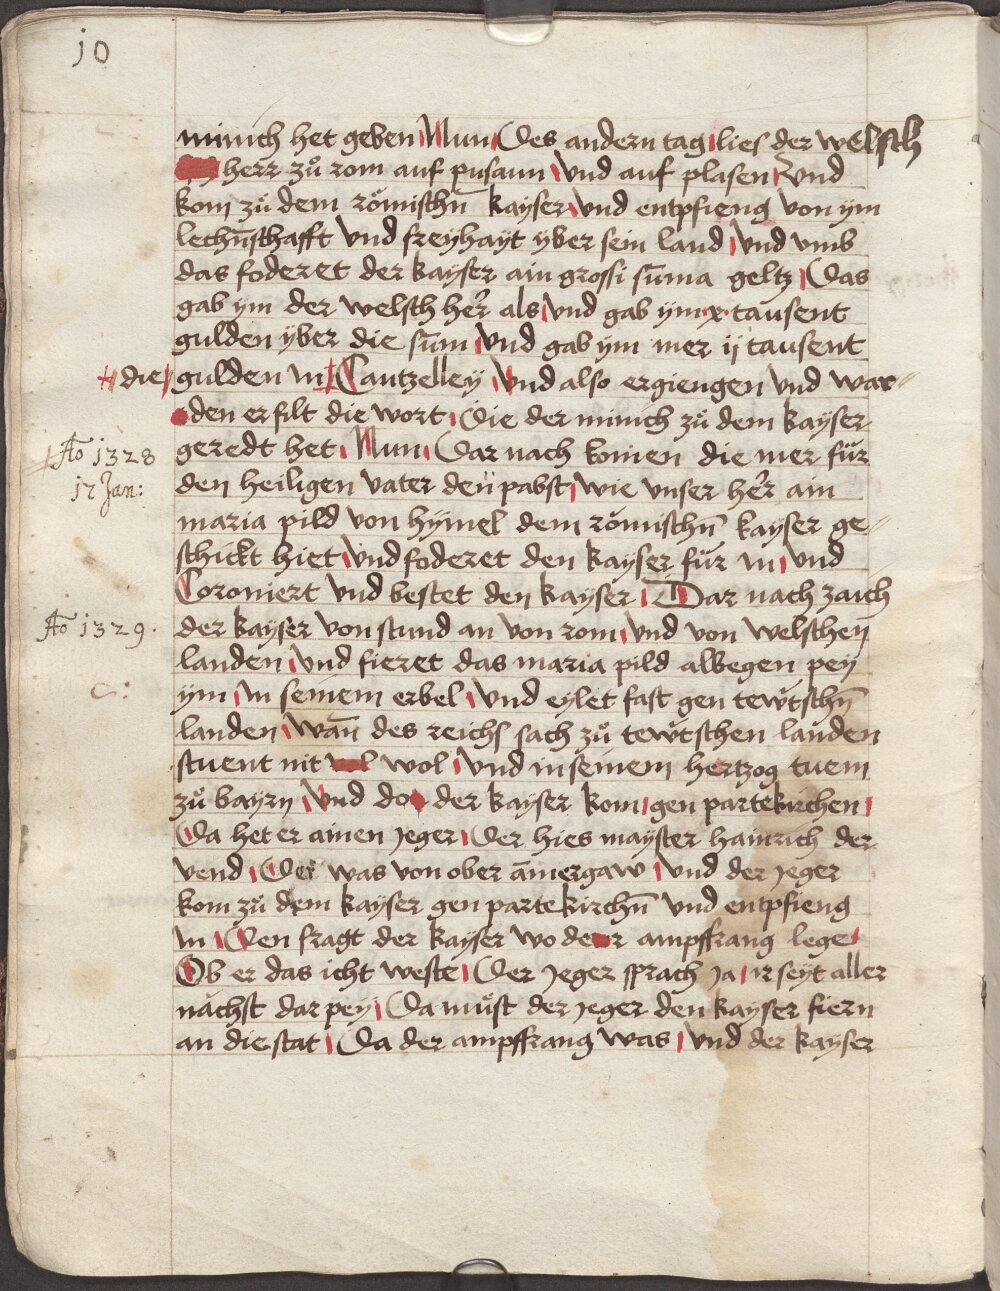 10
minich het geben Nun Des andern tag lies der welsch
herr zů rom auf pusaun Vnd auf plasen Vnd
kom zů dem römischn̄ kayser Vnd entpfieng von ym
lechn̄schafft Vnd freyhayt yber sein land Vnd vmb
das foderet der kayser ain grossi sūma geltz Das
gab ym der welsch her̄ als Vnd gab ym x tausent
gulden yber die sūm Vnd gab ym mer ij tausent
die gulden in Cantzelley Vnd also ergiengen Vnd war〃
den erfilt die wort Die der minich zů dem kayser
Ao 1328 geredt het Nun Dar nach komen die mer für
17 Jan: den heiligen vater den pabst wie vnser her̄ ain
maria pild von hymel dem römischn̄ kayser ge〃
schickt hiet Vnd foderet den kayser für in Vnd
Coroniert vnd bestet den kayser Dar nach zaich
Ao 1329. der kayser von stund an von rom Vnd von welschen
landen Vnd fieret das maria pild albegen pey
C: ym in seinem erbel Vnd eylet fast gen tewtschn̄
landen Wan̄ des reichs sach zů tewtschen landen
stuent nit wol Vnd in seinem hertzog tuem
zů bayrn Vnd do der kayser kom gen partekirchen
Da het er ainen jeger Der hies mayster hainrich der
vend Der was von ober āmergaw Vnd der jeger
kom zů dem kayser gen partekirchn̄ Vnd entpfieng
in Den fragt der kayser wo der ampffrang lege
Ob er das icht weste Der jeger sprach ja ir seyt aller
nächst dar pey Da můst der jeger den kayser fiern
an die stat Da der ampffrang was Vnd der kayser